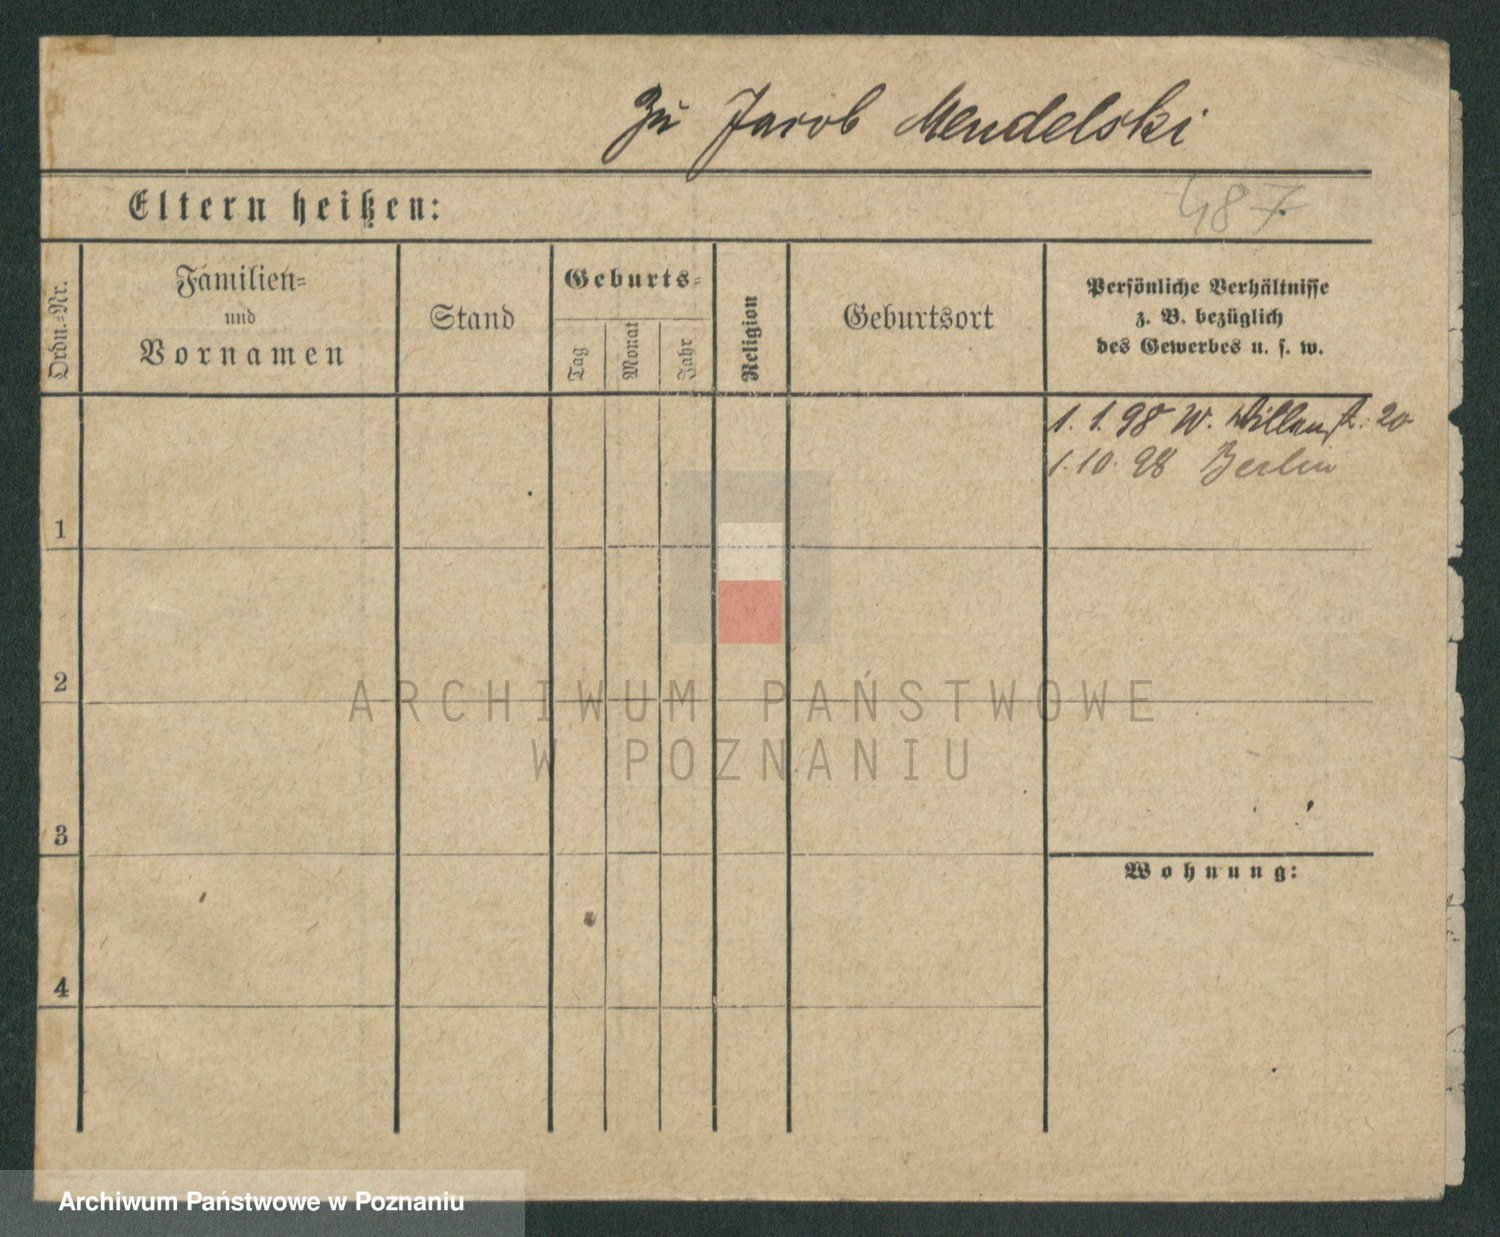 Zu Jacob Mendelski
Eltern heißen:
487
Ordn.-Nr.
Familien-
und
Vornamen
Stand
Geburts-
Tag
Monat
Jahr
Religion
Geburtsort
Persönliche Verhältnisse
z. B. bezüglich
des Gewerbes u. s. w.
1. 1. 98 W. 20
1. 10. 98 Berlin
1
2
ARCHIWUM PAŃSTWOWE
W POZNANIU
3
Wohnung:
4
Archiwum Państwowe w Poznaniu